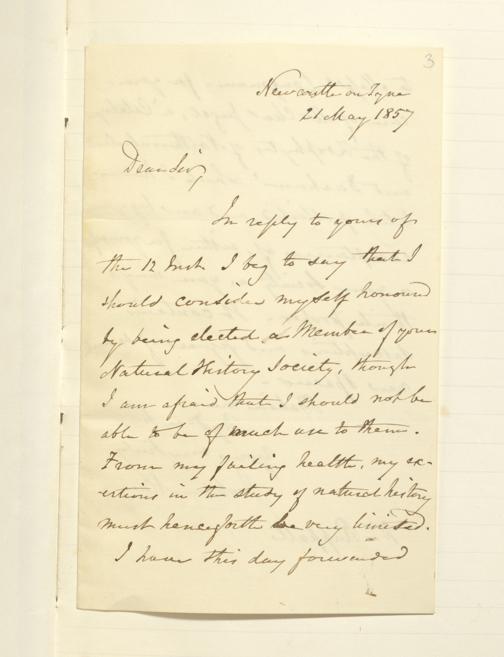 3
Newcastle on Tyne
21 May 1857
Dear Sir,
In reply to yours of
the 12 Inst. I beg to say that I
should consider myself honoured
by being elected a Member of your
Natural History Society, though
I am afraid that I should not be
able to be of much use to them.
From my failing health, my ex-
ertions in the study of natural history
must henceforth be very limited.
I have this day forwarded